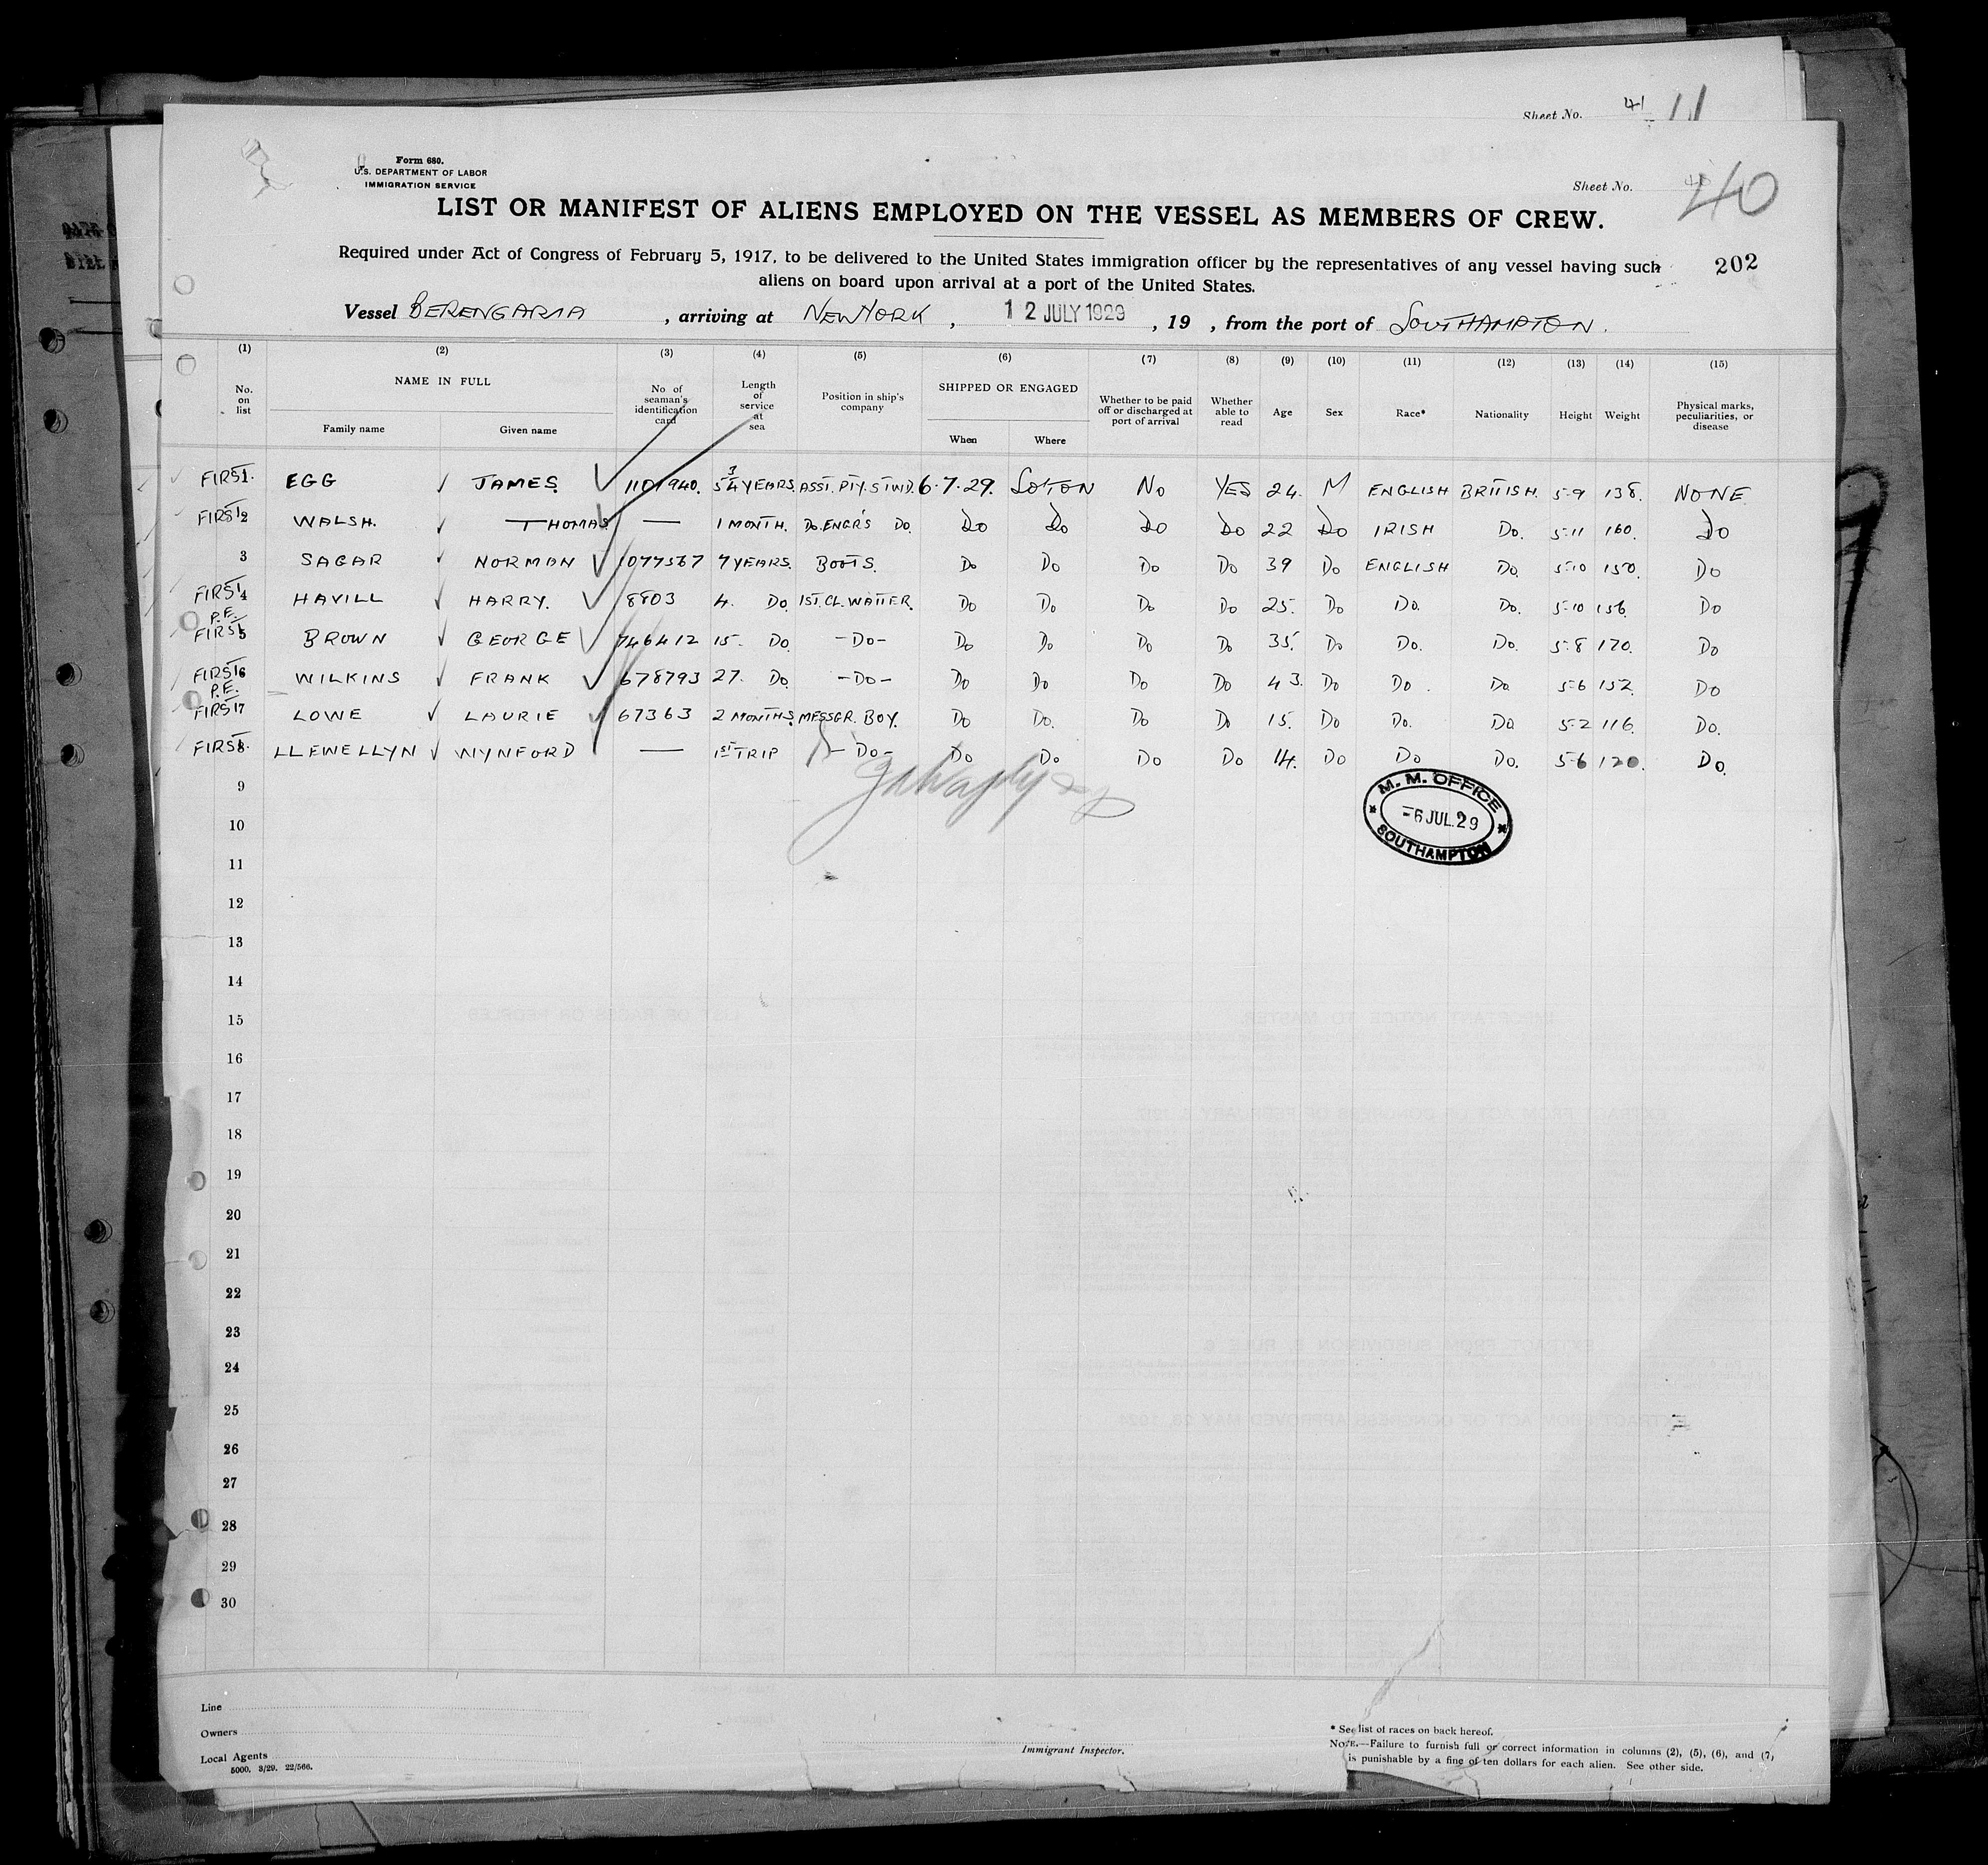 Sheet No. 41 11
Form 680.
U.S. DEPARTMENT OF LABOR
IMMIGRATION SERVICE
Sheet No. 40 40
LIST OR MANIFEST OF ALIENS EMPLOYED ON THE VESSEL AS MEMBERS OF CREW.
Required under Act of Congress of February 5, 1917, to be delivered to the United States immigration officer by the representatives of any vessel having such
aliens on board upon arrival at a port of the United States.
202
Vessel BERENGARIA, arriving at NEW YORK, 12 JULY 1929, 19 , from the port of SOUTHAMPTON.
(1) (2) (3) (4) (5) (6) (7) (8) (9) (10) (11) (12) (13) (14) (15)
No. on list NAME IN FULL Family name Given name No. of seaman's identification card Length of service at sea Position in ship's company SHIPPED OR ENGAGED When Where Whether to be paid off or discharged at port of arrival Whether able to read Age Sex Race* Nationality Height Weight Physical marks, peculiarities, or disease
FIRST 1. EGG JAMES. 1101940. 5 3/4 YEARS. ASST. PTY. STWD. 6.7.29. SO'TON No YES 24. M ENGLISH BRITISH. 5-9 138. NONE
FIRST 2 WALSH. THOMAS — 1 MONTH. Do. ENGR'S Do. Do Do Do Do 22 Do IRISH Do. 5-11 160. Do
3 SAGAR NORMAN 1077567 7 YEARS. BOOTS. Do Do Do Do 39 Do ENGLISH Do. 5-10 150. Do
FIRST 4 HAVILL HARRY. 8803 4. Do. 1ST. CL. WAITER. Do Do Do Do 25. Do Do. Do. 5-10 156. Do
P.E.
FIRST 5 BROWN GEORGE 746412 15. Do. -Do- Do Do Do Do 35. Do Do. Do. 5-8 170. Do
FIRST 6 WILKINS FRANK 678793 27. Do. -Do- Do Do Do Do 43. Do Do. Do 5-6 152. Do
P.E.
FIRST 7 LOWE LAURIE 67363 2 MONTHS. MESSGR. BOY. Do Do. Do Do 15. Do Do. Do 5-2 116. Do.
FIRST 8. LLEWELLYN WYNFORD — 1ST TRIP -Do- Do Do Do Do 14. Do Do Do. 5-6 120. Do.
M. M. OFFICE
-6 JUL. 29
SOUTHAMPTON
9
10
11
12
13
14
15
16
17
18
19
20
21
22
23
24
25
26
27
28
29
30
Line
Owners
Local Agents
5000. 3/29. 22/566.
Immigrant Inspector.
* See list of races on back hereof.
NOTE.—Failure to furnish full or correct information in columns (2), (5), (6), and (7)
is punishable by a fine of ten dollars for each alien. See other side.